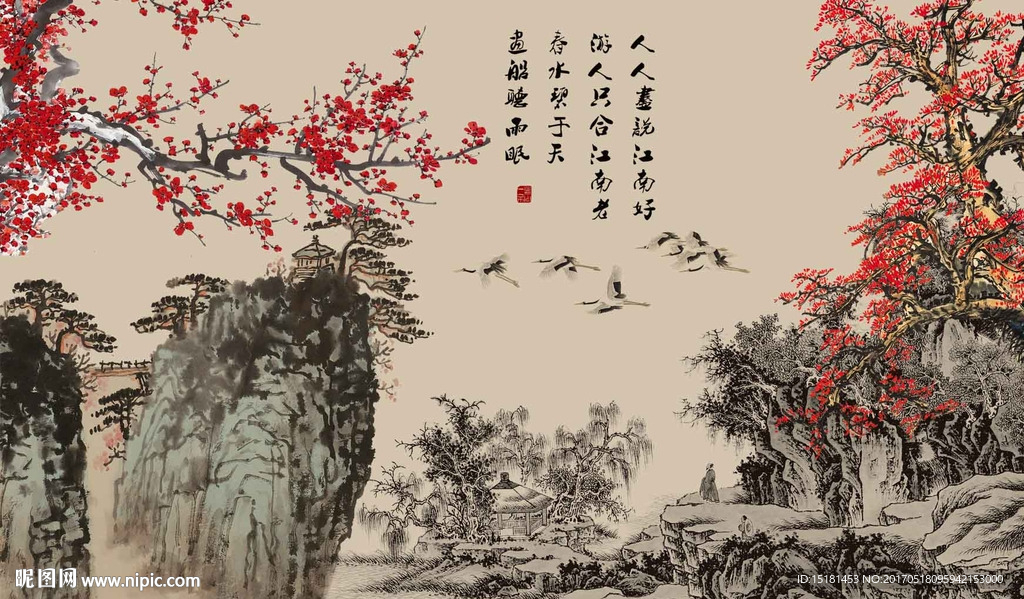 人人盡説江南好
游人只合江南老
春水碧于天
畫船聽雨眠
昵图网 www.nipic.com
ID:15181453 NO:20170518095942153000